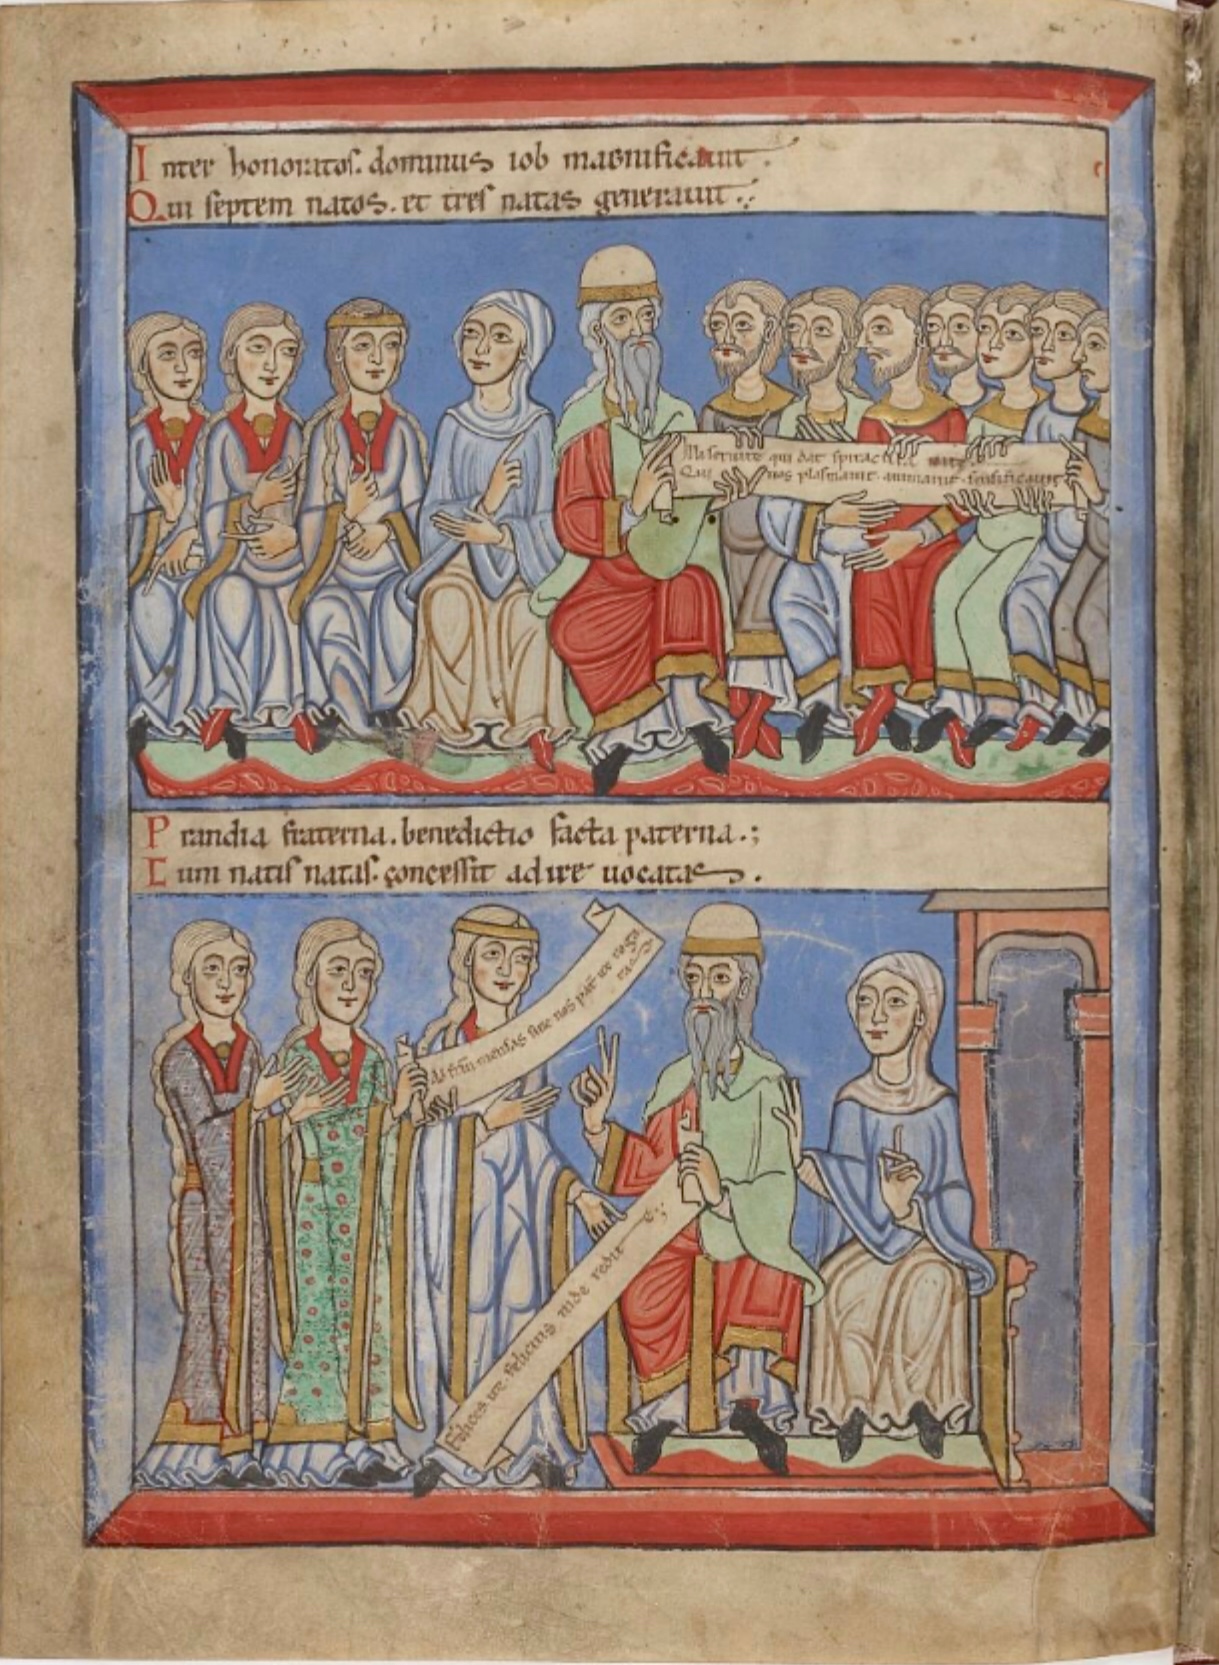 Inter honoratos. dominus iob magnificauit.
Qui septem natos. et tres natas generauit.
qui dat spiracula
Qui nos plasmauit. animauit. señificauit
Prandia fraterna. benedictio facta paterna.;
Cum natis natas. concessit adire uocatas.
Ad frm̄ mensas sine nos pat̄ ire roga
tas
Felices ite. felicius inde redite;